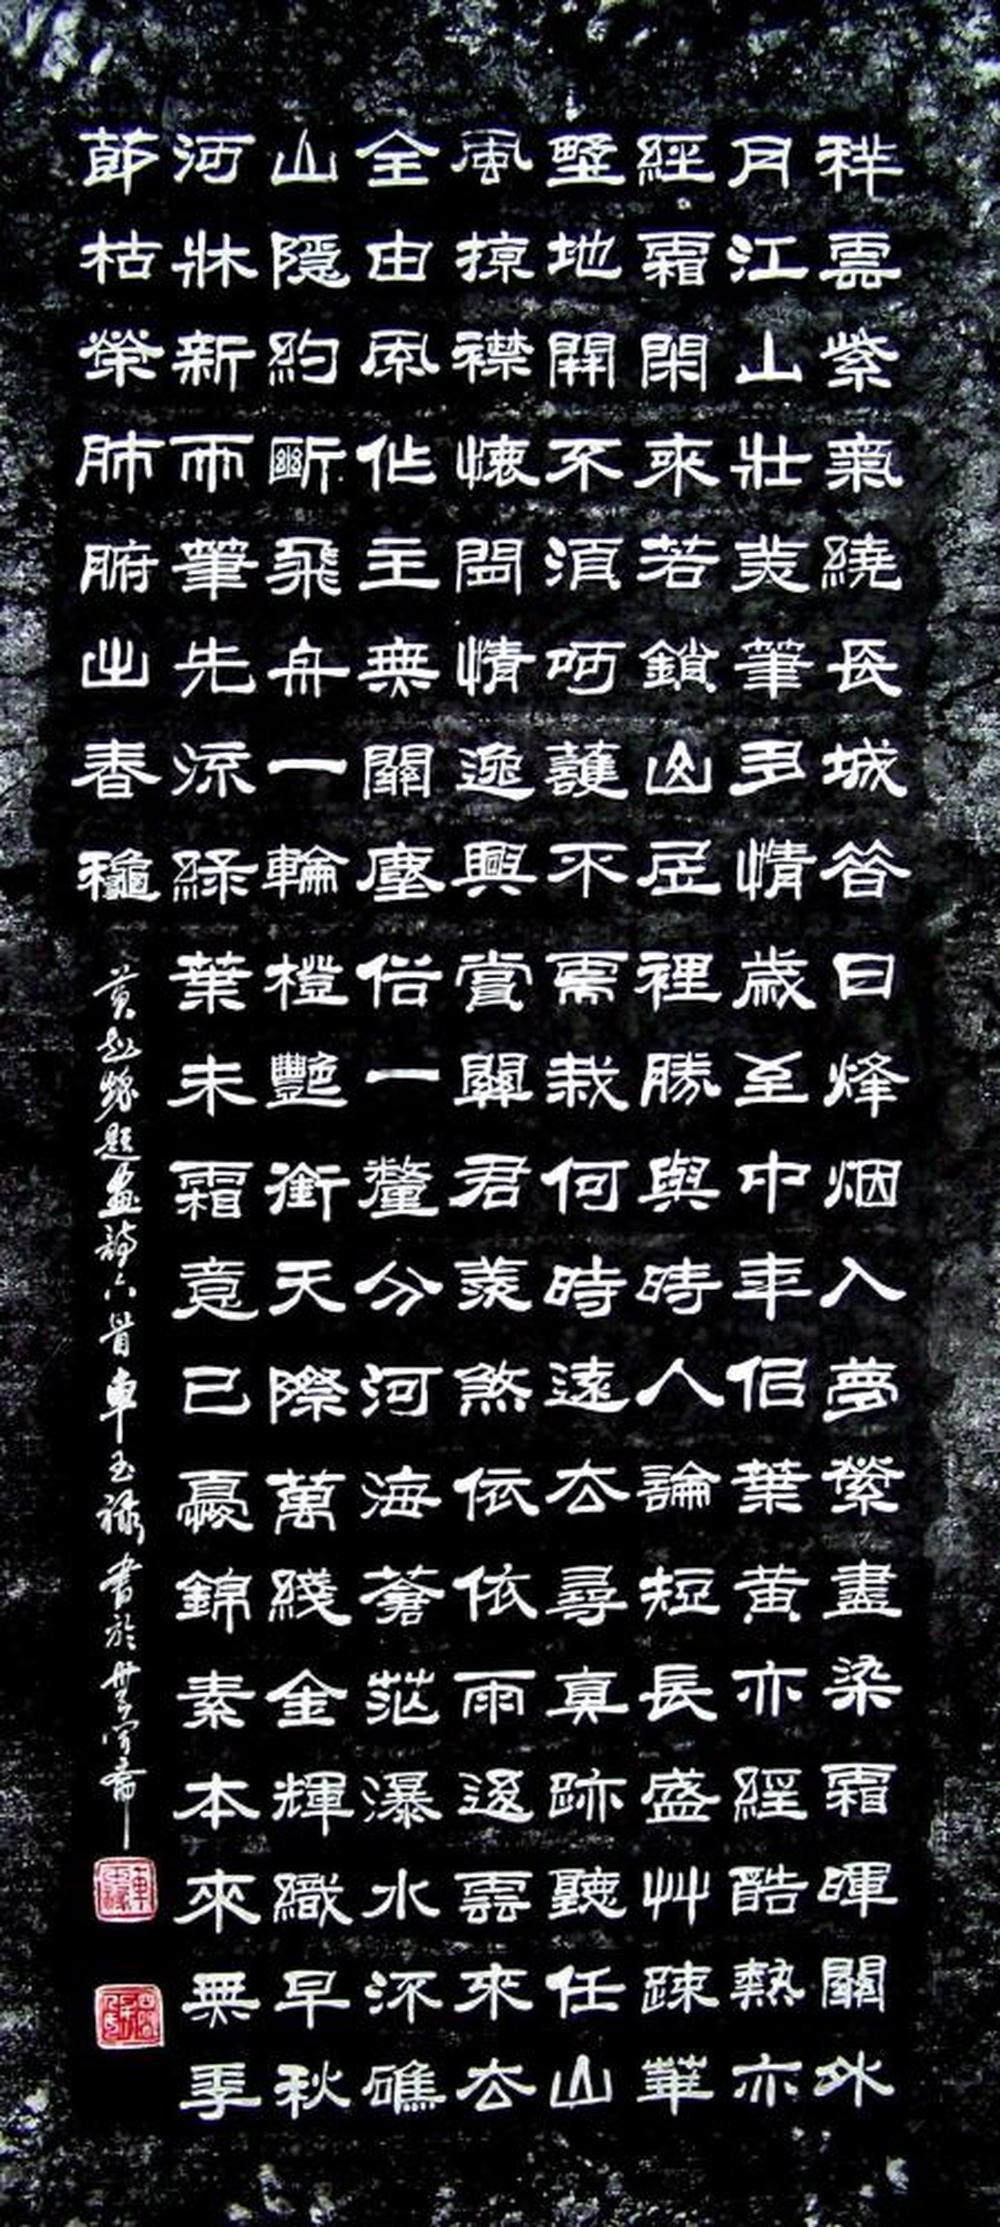 祥雲紫氣繞長城答日烽烟入夢縈盡染霜暉關外
月江山壯美筆多情歲至中年侣葉黄亦經酷熱亦
經霜閑來若鎖幽居裡勝與時人論短長盛艸踈華
墅地開不須呵護不需栽何時遠去尋真跡聽任山
風掠襟懷閒情逸興賞關君羨煞依依雨送雲來去
全由風作主無關塵俗一釐分河海蒼茫瀑水深礁
山隱約斷飛舟一輪橙艷銜天際萬綫金輝織早秋
河牀新雨筆先流綠葉未霜意已憂錦素本來無季
節枯榮肺腑出春穐
黄題畫詩六首車玉祿書於齋